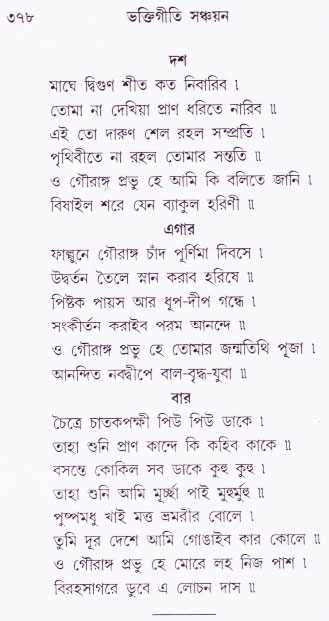 ৩৭৮ ভক্তিগীতি সঞ্চয়ন
দশ
মাঘে দ্বিগুণ শীত কত নিবারিব ৷
তোমা না দেখিয়া প্রাণ ধরিতে নারিব ॥
এই তো দারুণ শেল রহল সম্প্রতি ৷
পৃথিবীতে না রহল তোমার সন্ততি ॥
ও গৌরাঙ্গ প্রভু হে আমি কি বলিতে জানি ৷
বিষাইল শরে যেন ব্যাকুল হরিণী ॥
এগার
ফাল্গুনে গৌরাঙ্গ চাঁদ পূর্ণিমা দিবসে ৷
উদ্বর্তন তৈলে স্নান করাব হরিষে ॥
পিষ্টক পায়স আর ধূপ-দীপ গন্ধে ৷
সংকীর্তন করাইব পরম আনন্দে ॥
ও গৌরাঙ্গ প্রভু হে তোমার জন্মতিথি পূজা ৷
আনন্দিত নবদ্বীপে বাল-বৃদ্ধ-যুবা ॥
বার
চৈত্রে চাতকপক্ষী পিউ পিউ ডাকে ৷
তাহা শুনি প্রাণ কান্দে কি কহিব কাকে ॥
বসন্তে কোকিল সব ডাকে কুহু কুহু ৷
তাহা শুনি আমি মূর্চ্ছা পাই মুহুর্মুহু ॥
পুষ্পমধু খাই মত্ত ভ্রমরীর বোলে ৷
তুমি দূর দেশে আমি গোঙাইব কার কোলে ॥
ও গৌরাঙ্গ প্রভু হে মোরে লহ নিজ পাশ ৷
বিরহসাগরে ডুবে এ লোচন দাস ॥